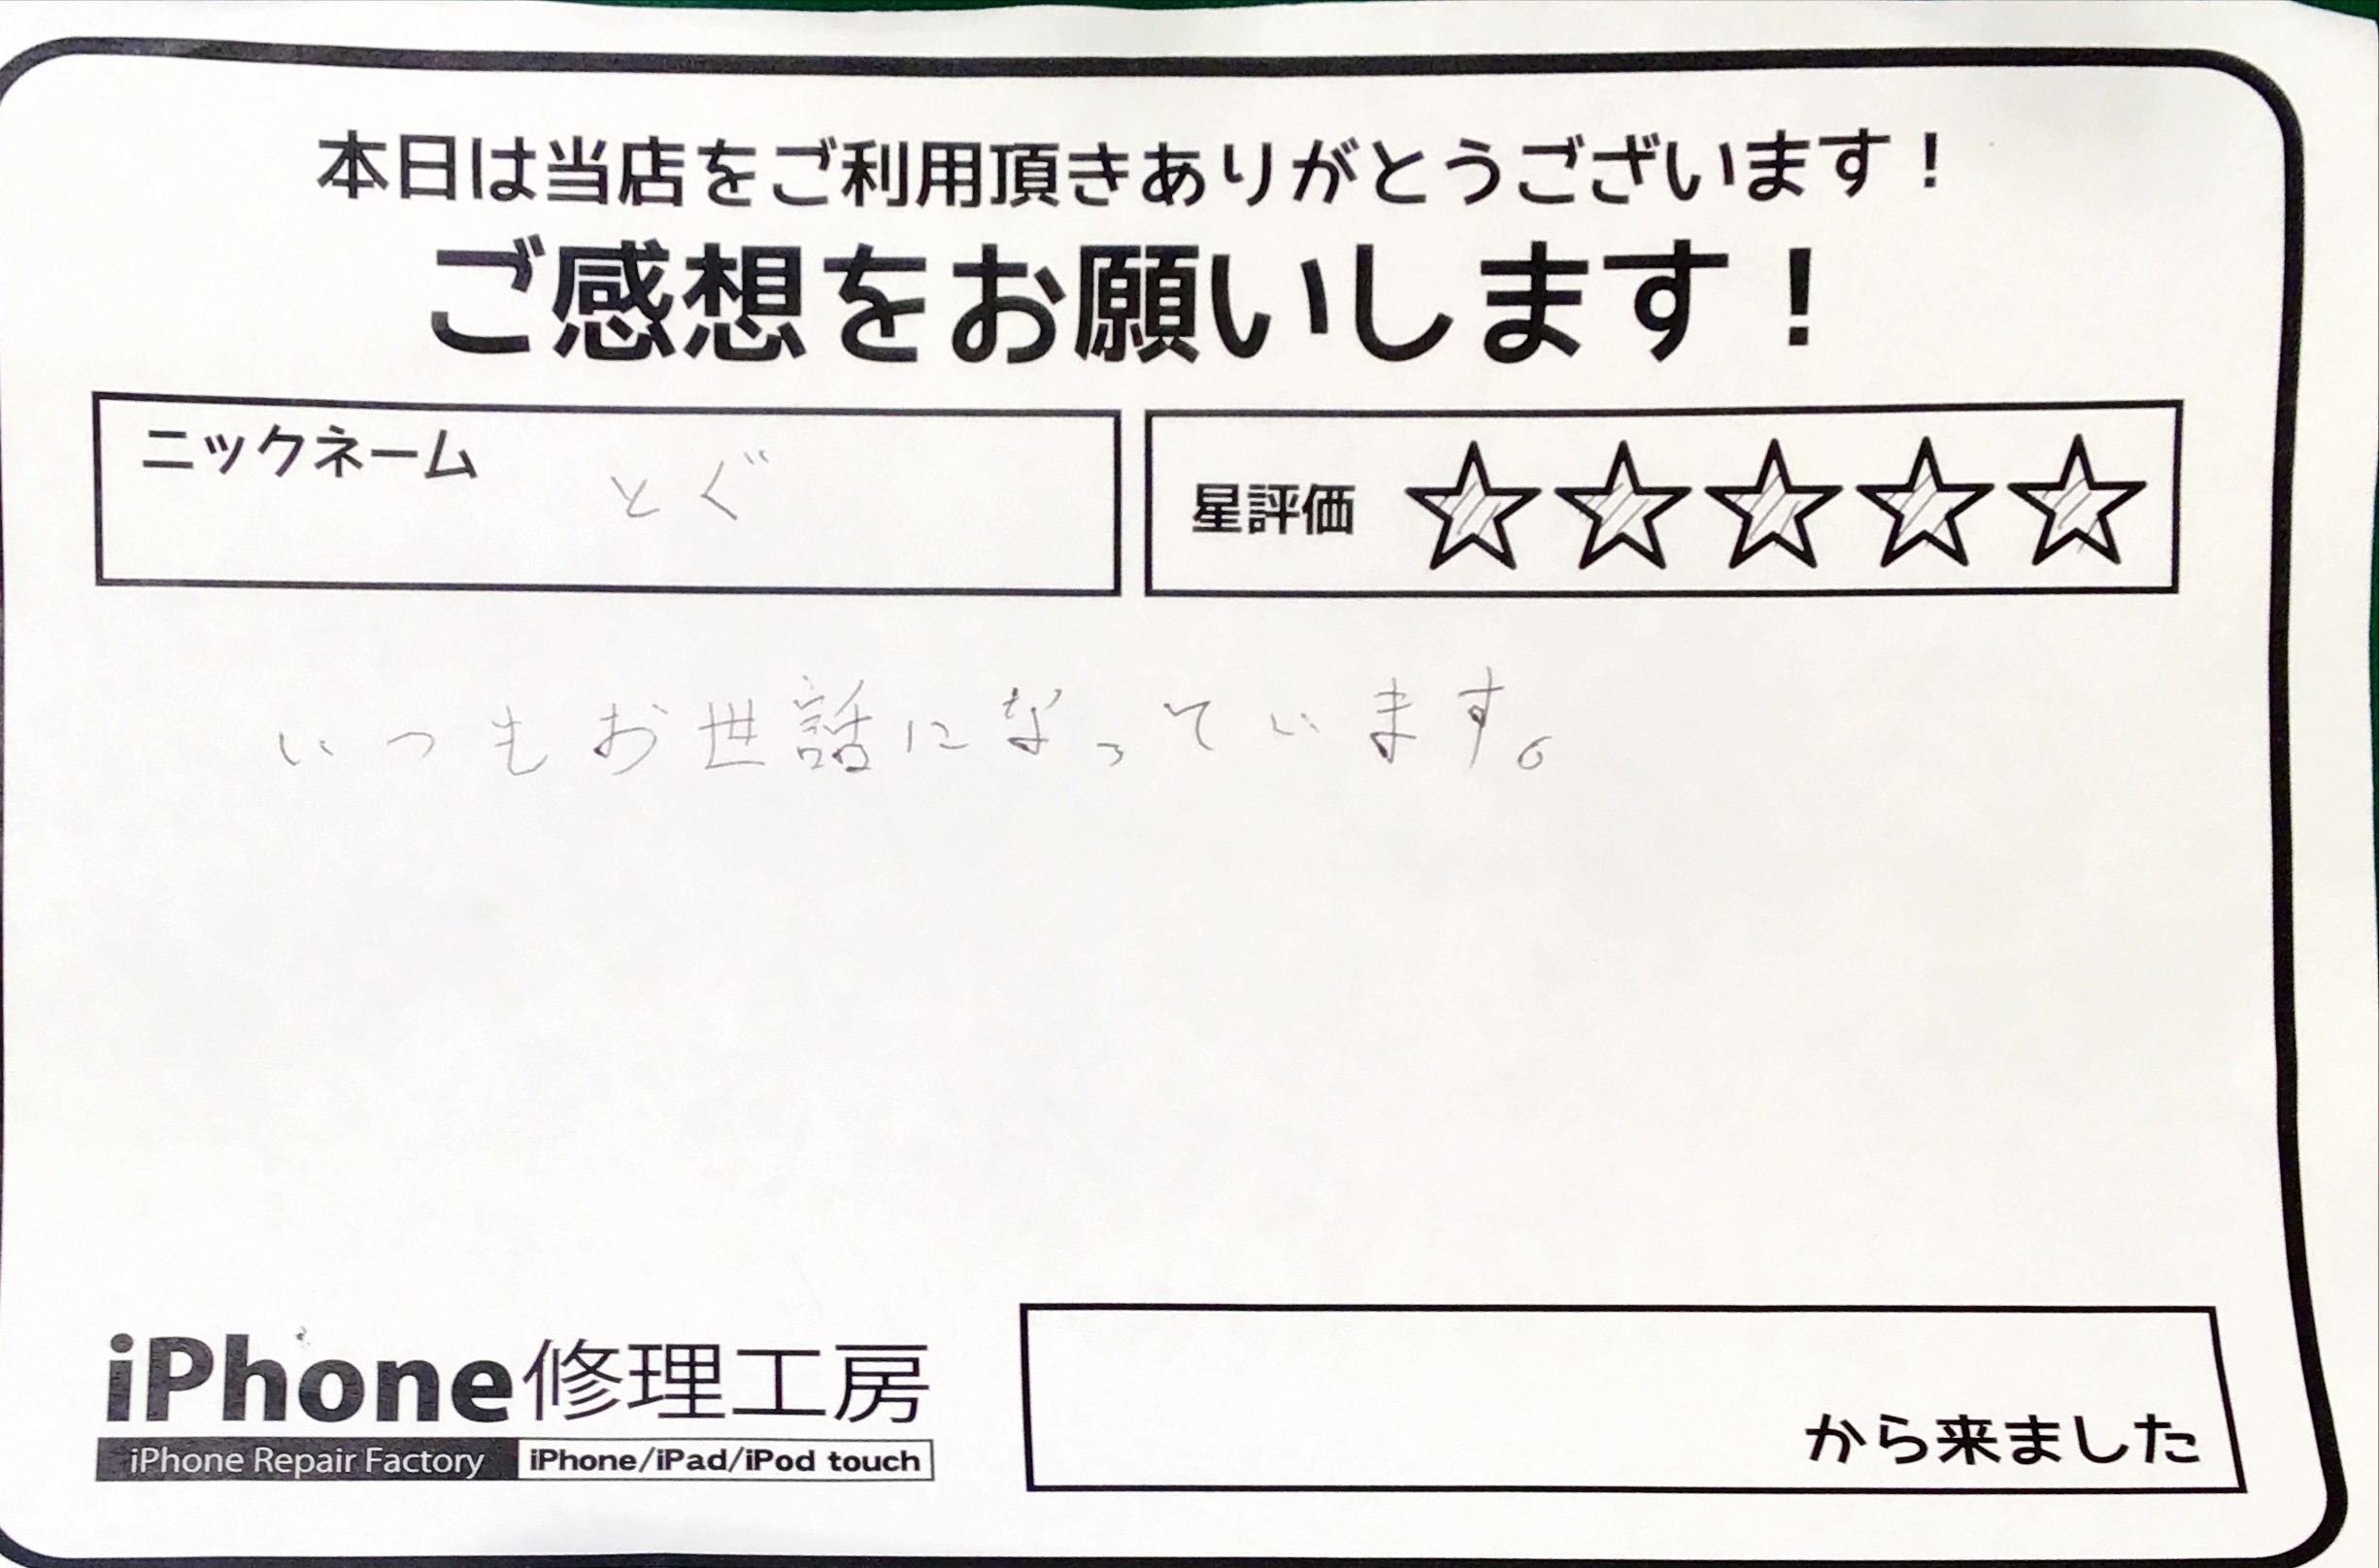 本日は当店をご利用頂きありがとうございます！
ご感想をお願いします！
ニックネーム とぐ
星評価 ☆☆☆☆☆
いつもお世話になっています。
iPhone修理工房
iPhone Repair Factory iPhone/iPad/iPod touch
から来ました